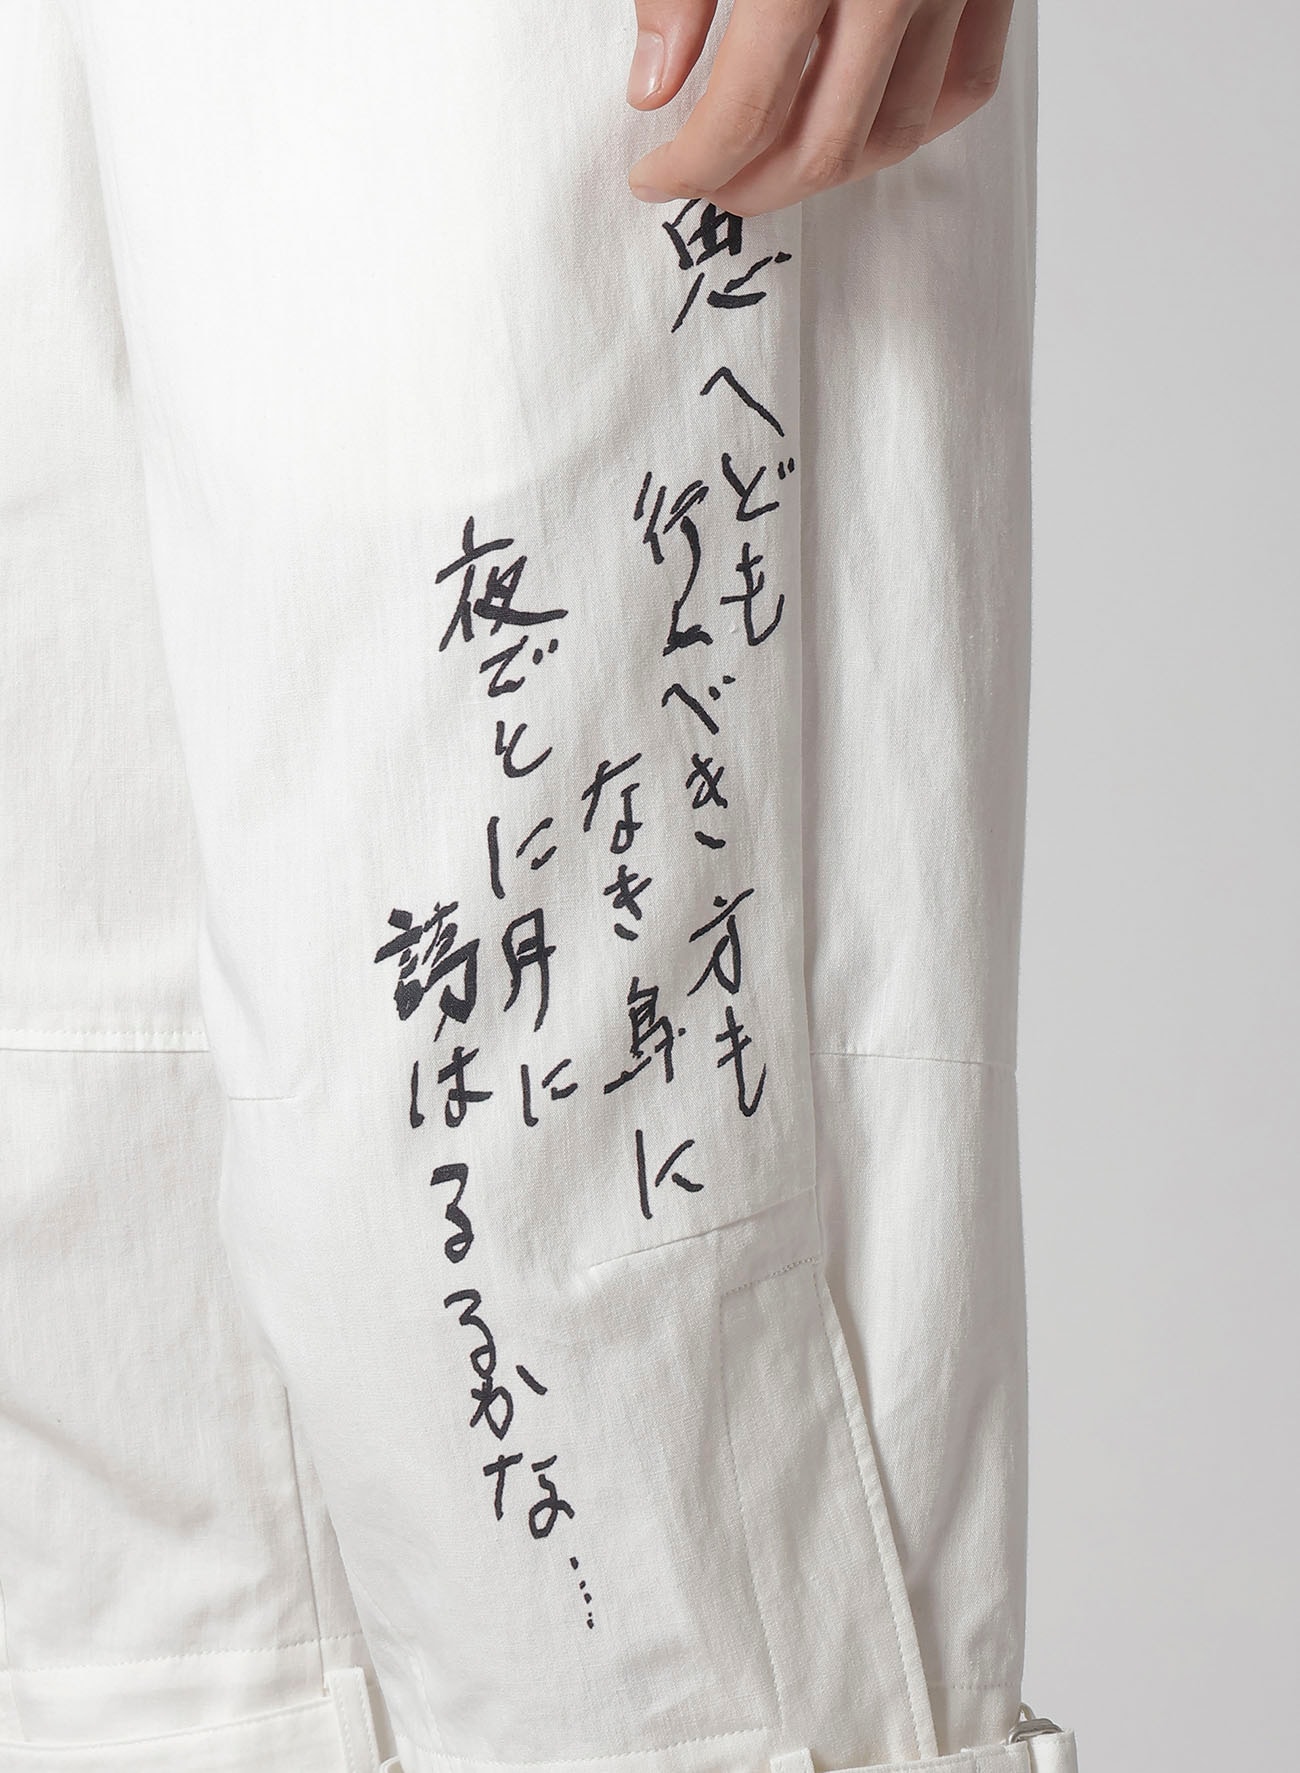 思へども
行くべき方も
なき身に
夜ごとに月に
誘はるるかな....